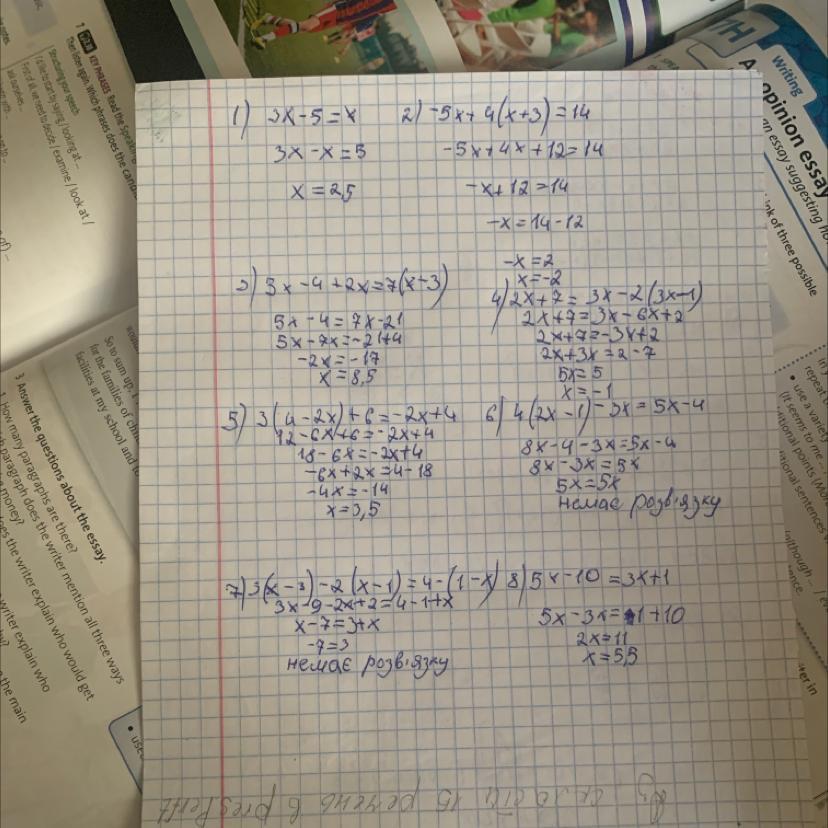 1) 3x-5=x
3x-x=5
x=2,5
2) -5x+4(x+3)=14
-5x+4x+12=14
-x+12=14
-x=14-12
-x=2
x=-2
3) 5x-4+2x=7(x-3)
5x-4=7x-21
5x-7x=-21+4
-2x=-17
x=8,5
4) 2x+7=3x-2(3x-1)
2x+7=3x-6x+2
2x+7=-3x+2
2x+3x=2-7
5x=5
x=-1
5) 3(4-2x)+6=-2x+4
12-6x+6=-2x+4
18-6x=-2x+4
-6x+2x=4-18
-4x=-14
x=3,5
6) 4(2x-1)-3x=5x-4
8x-4-3x=5x-4
8x-3x=5x
5x=5x
немає розв'язку
7) 3(x-3)-2(x-1)=4-(1-x)
3x-9-2x+2=4-1+x
x-7=3+x
-7=3
немає розв'язку
8) 5x-10=3x+1
5x-3x=1+10
2x=11
x=5,5
15 речень в present
KEY PHRASES Read the
Then listen again. Which phrases does the
Structuring your speech
I'd like to start by saying / looking at ...
First of all, we need to decide / examine / look at /
So to sum up, I
for the families of
facilities at my school and
3 Answer the questions about the essay.
How many paragraphs are there?
paragraph does the writer mention all three ways
money?
does the writer explain who would get
writer explain who
the main
Writing
opinion essay
an essay suggesting
of three possible
repeat
use a variety
(It seems to me
sentences
although